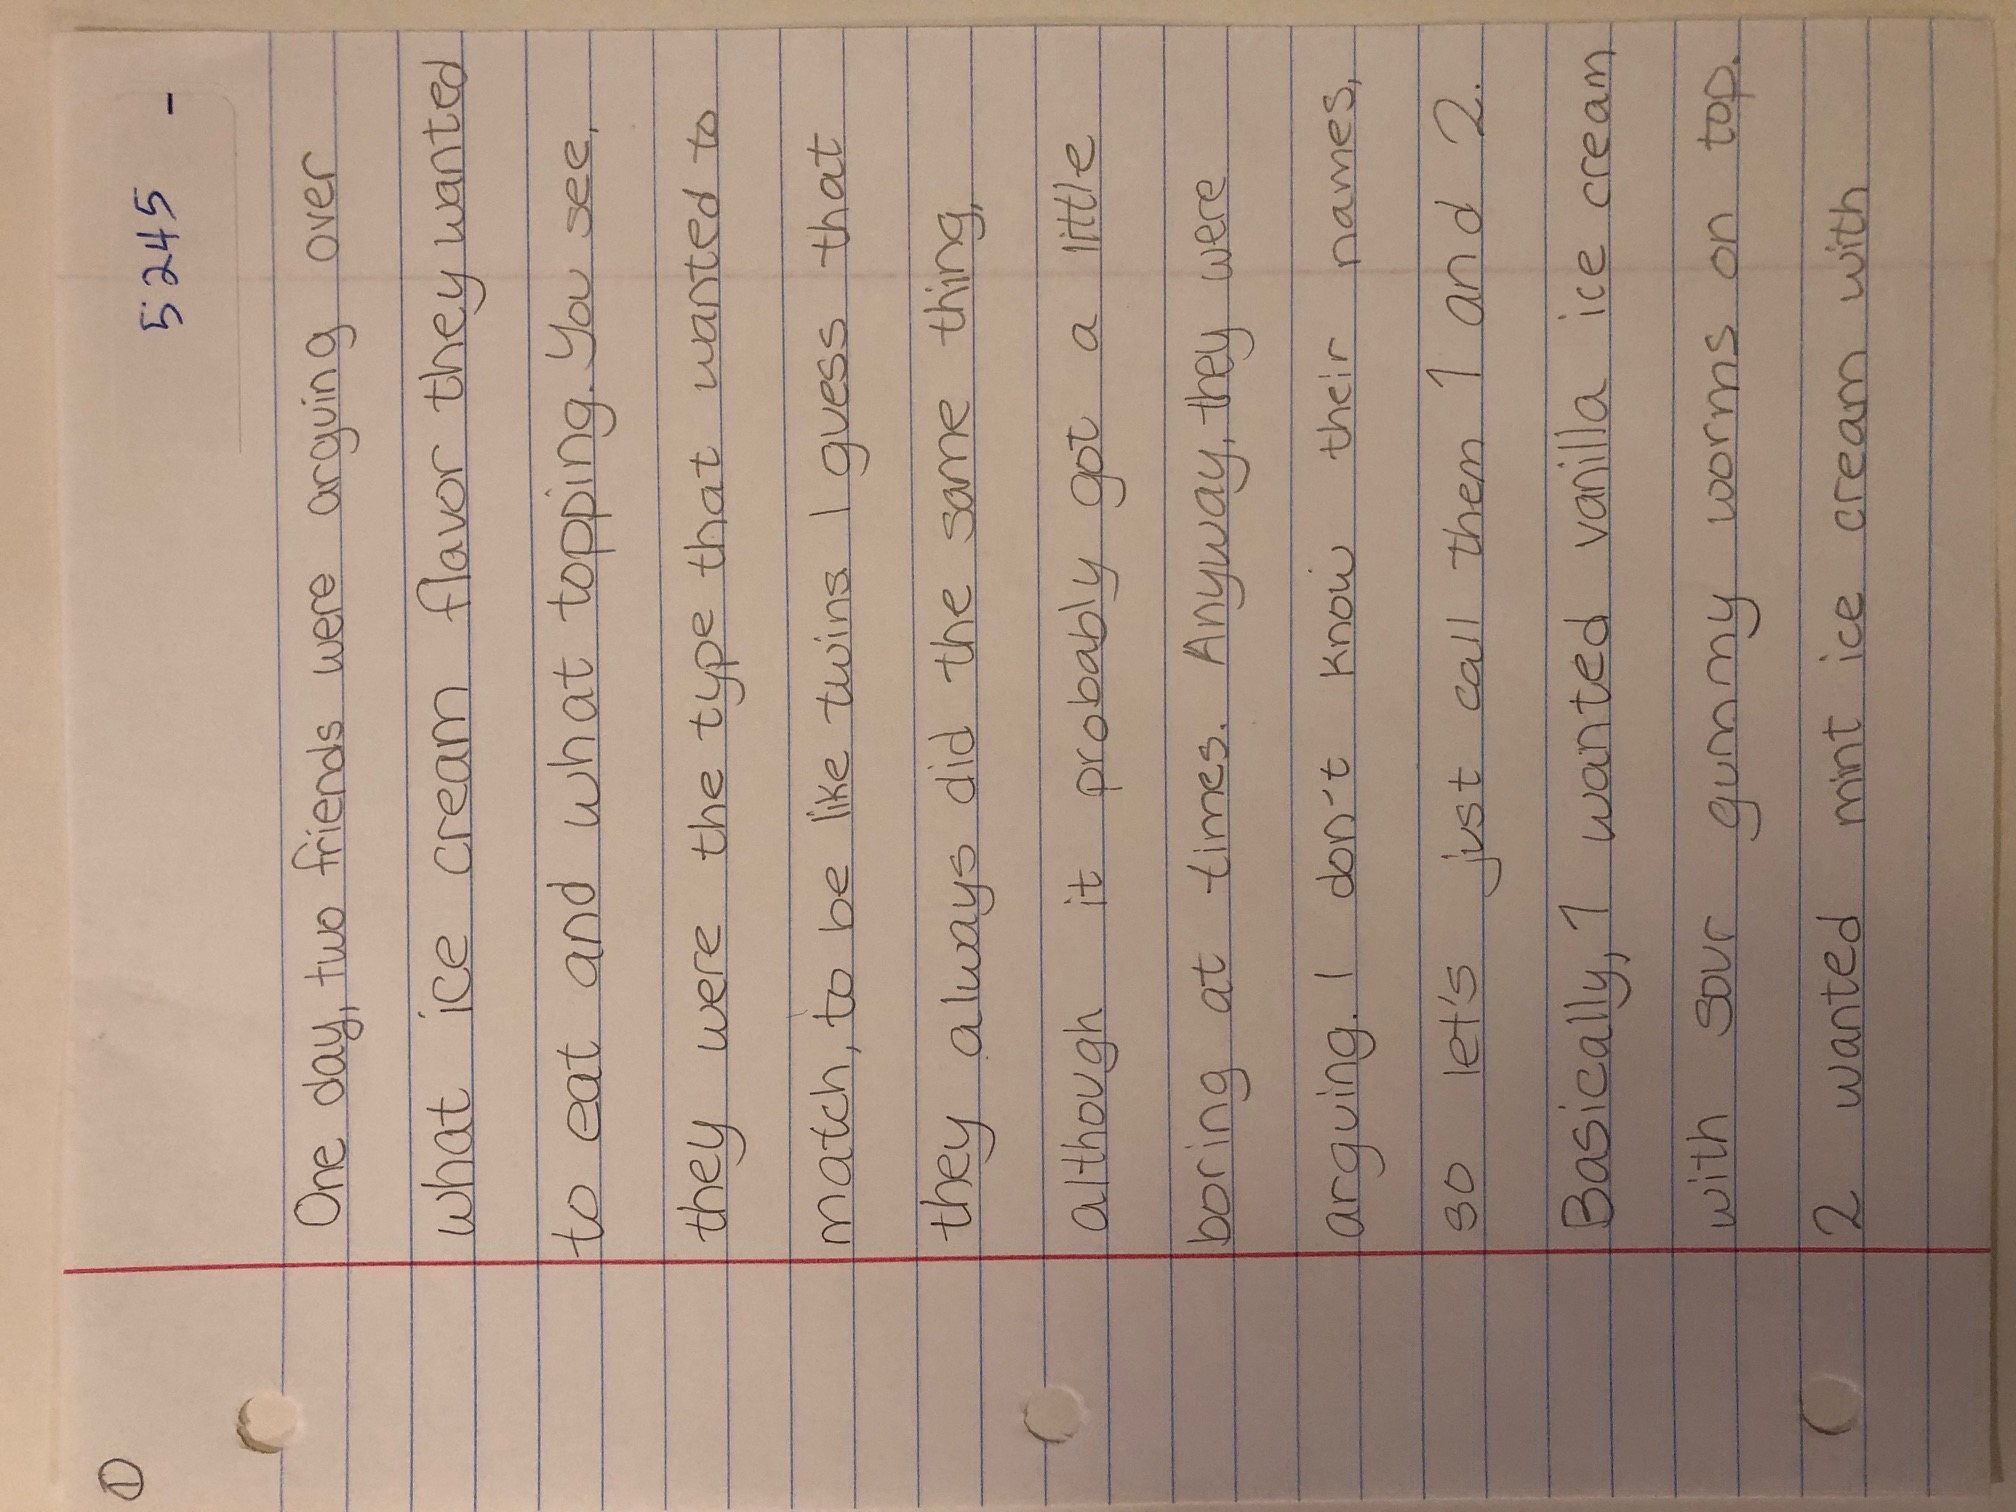 ①
5245 -
One day, two friends were arguing over
what ice cream flavor they wanted
to eat and what topping. You see,
they were the type that wanted to
match, to be like twins. I guess that
they always did the same thing,
although it probably got a little
boring at times. Anyway, they were
arguing. I don't know their names,
so let's just call them 1 and 2.
Basically, 1 wanted vanilla ice cream
with sour gummy worms on top.
2 wanted mint ice cream with